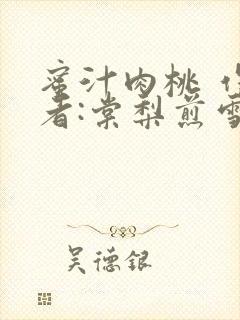 蜜汁肉桃
者:棠梨煎雪
吴德银